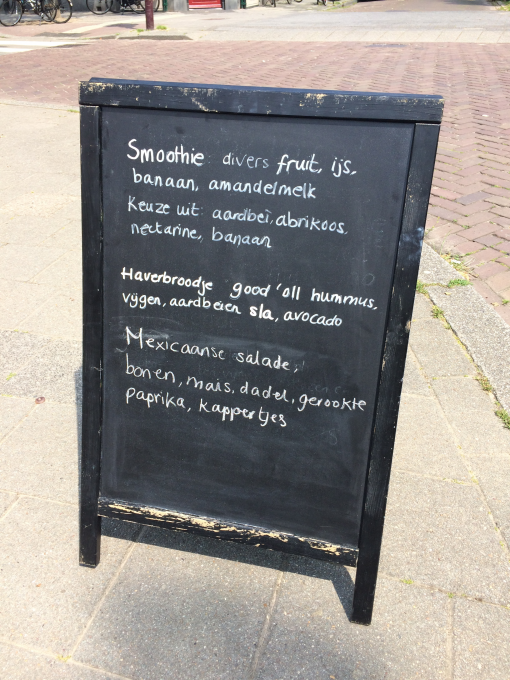 Smoothie: divers fruit, ijs,
banaan, amandelmelk
Keuze uit: aardbei, abrikoos,
nectarine, banaan
Haverbroodje good 'oll hummus,
vijgen, aardbeien sla, avocado
Mexicaanse salade;
bonen, mais, dadel, gerookte
paprika, kappertjes